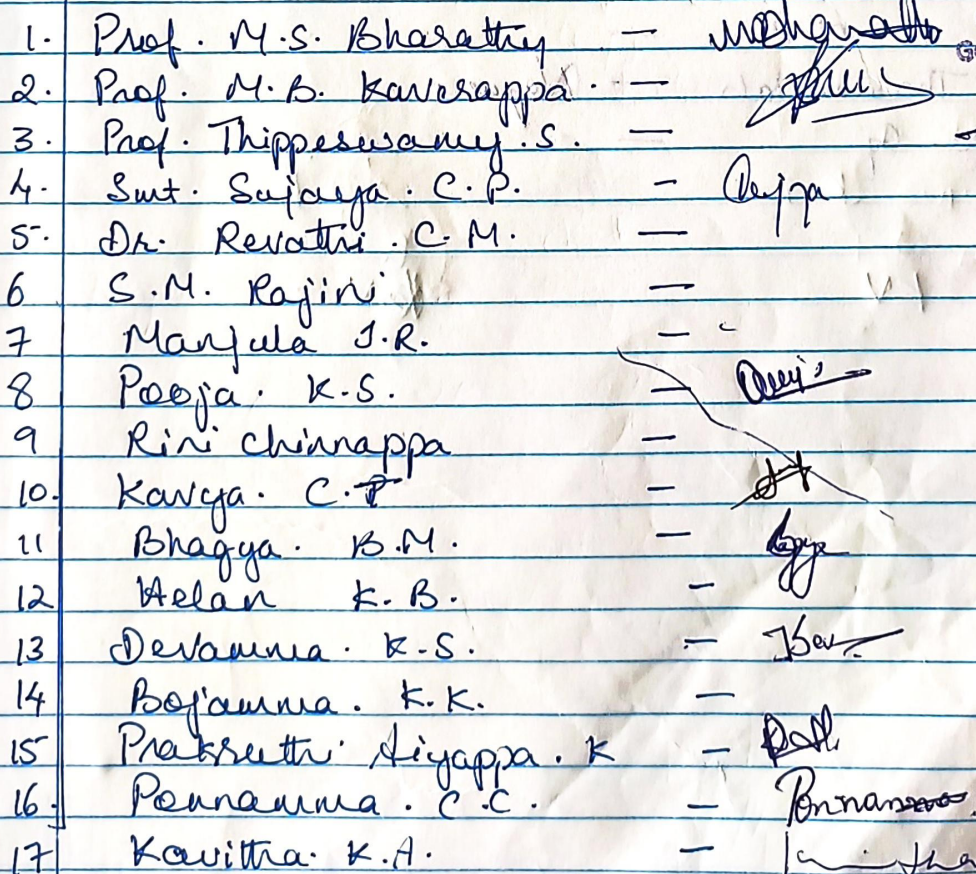 1. Prof. M.S. Bharathy —
2. Prof. M.B. Kaverappa. —
3. Prof. Thippeswamy.S. —
4. Smt. Sujaya. C.P. —
5. Dr. Revathi. C.M. —
6 S.M. Rajini —
7 Manjula J.R. —
8 Pooja. K.S. —
9 Rini Chinnappa —
10. Kavya. C.P —
11 Bhagya. B.M. —
12 Helan K.B. —
13 Devamma. K.S. — Dev
14 Bojamma. K.K. —
15 Prakruthi Aiyappa. K —
16. Ponnamma. C.C. — Ponnamma
17 Kavitha. K.A. — Kavitha